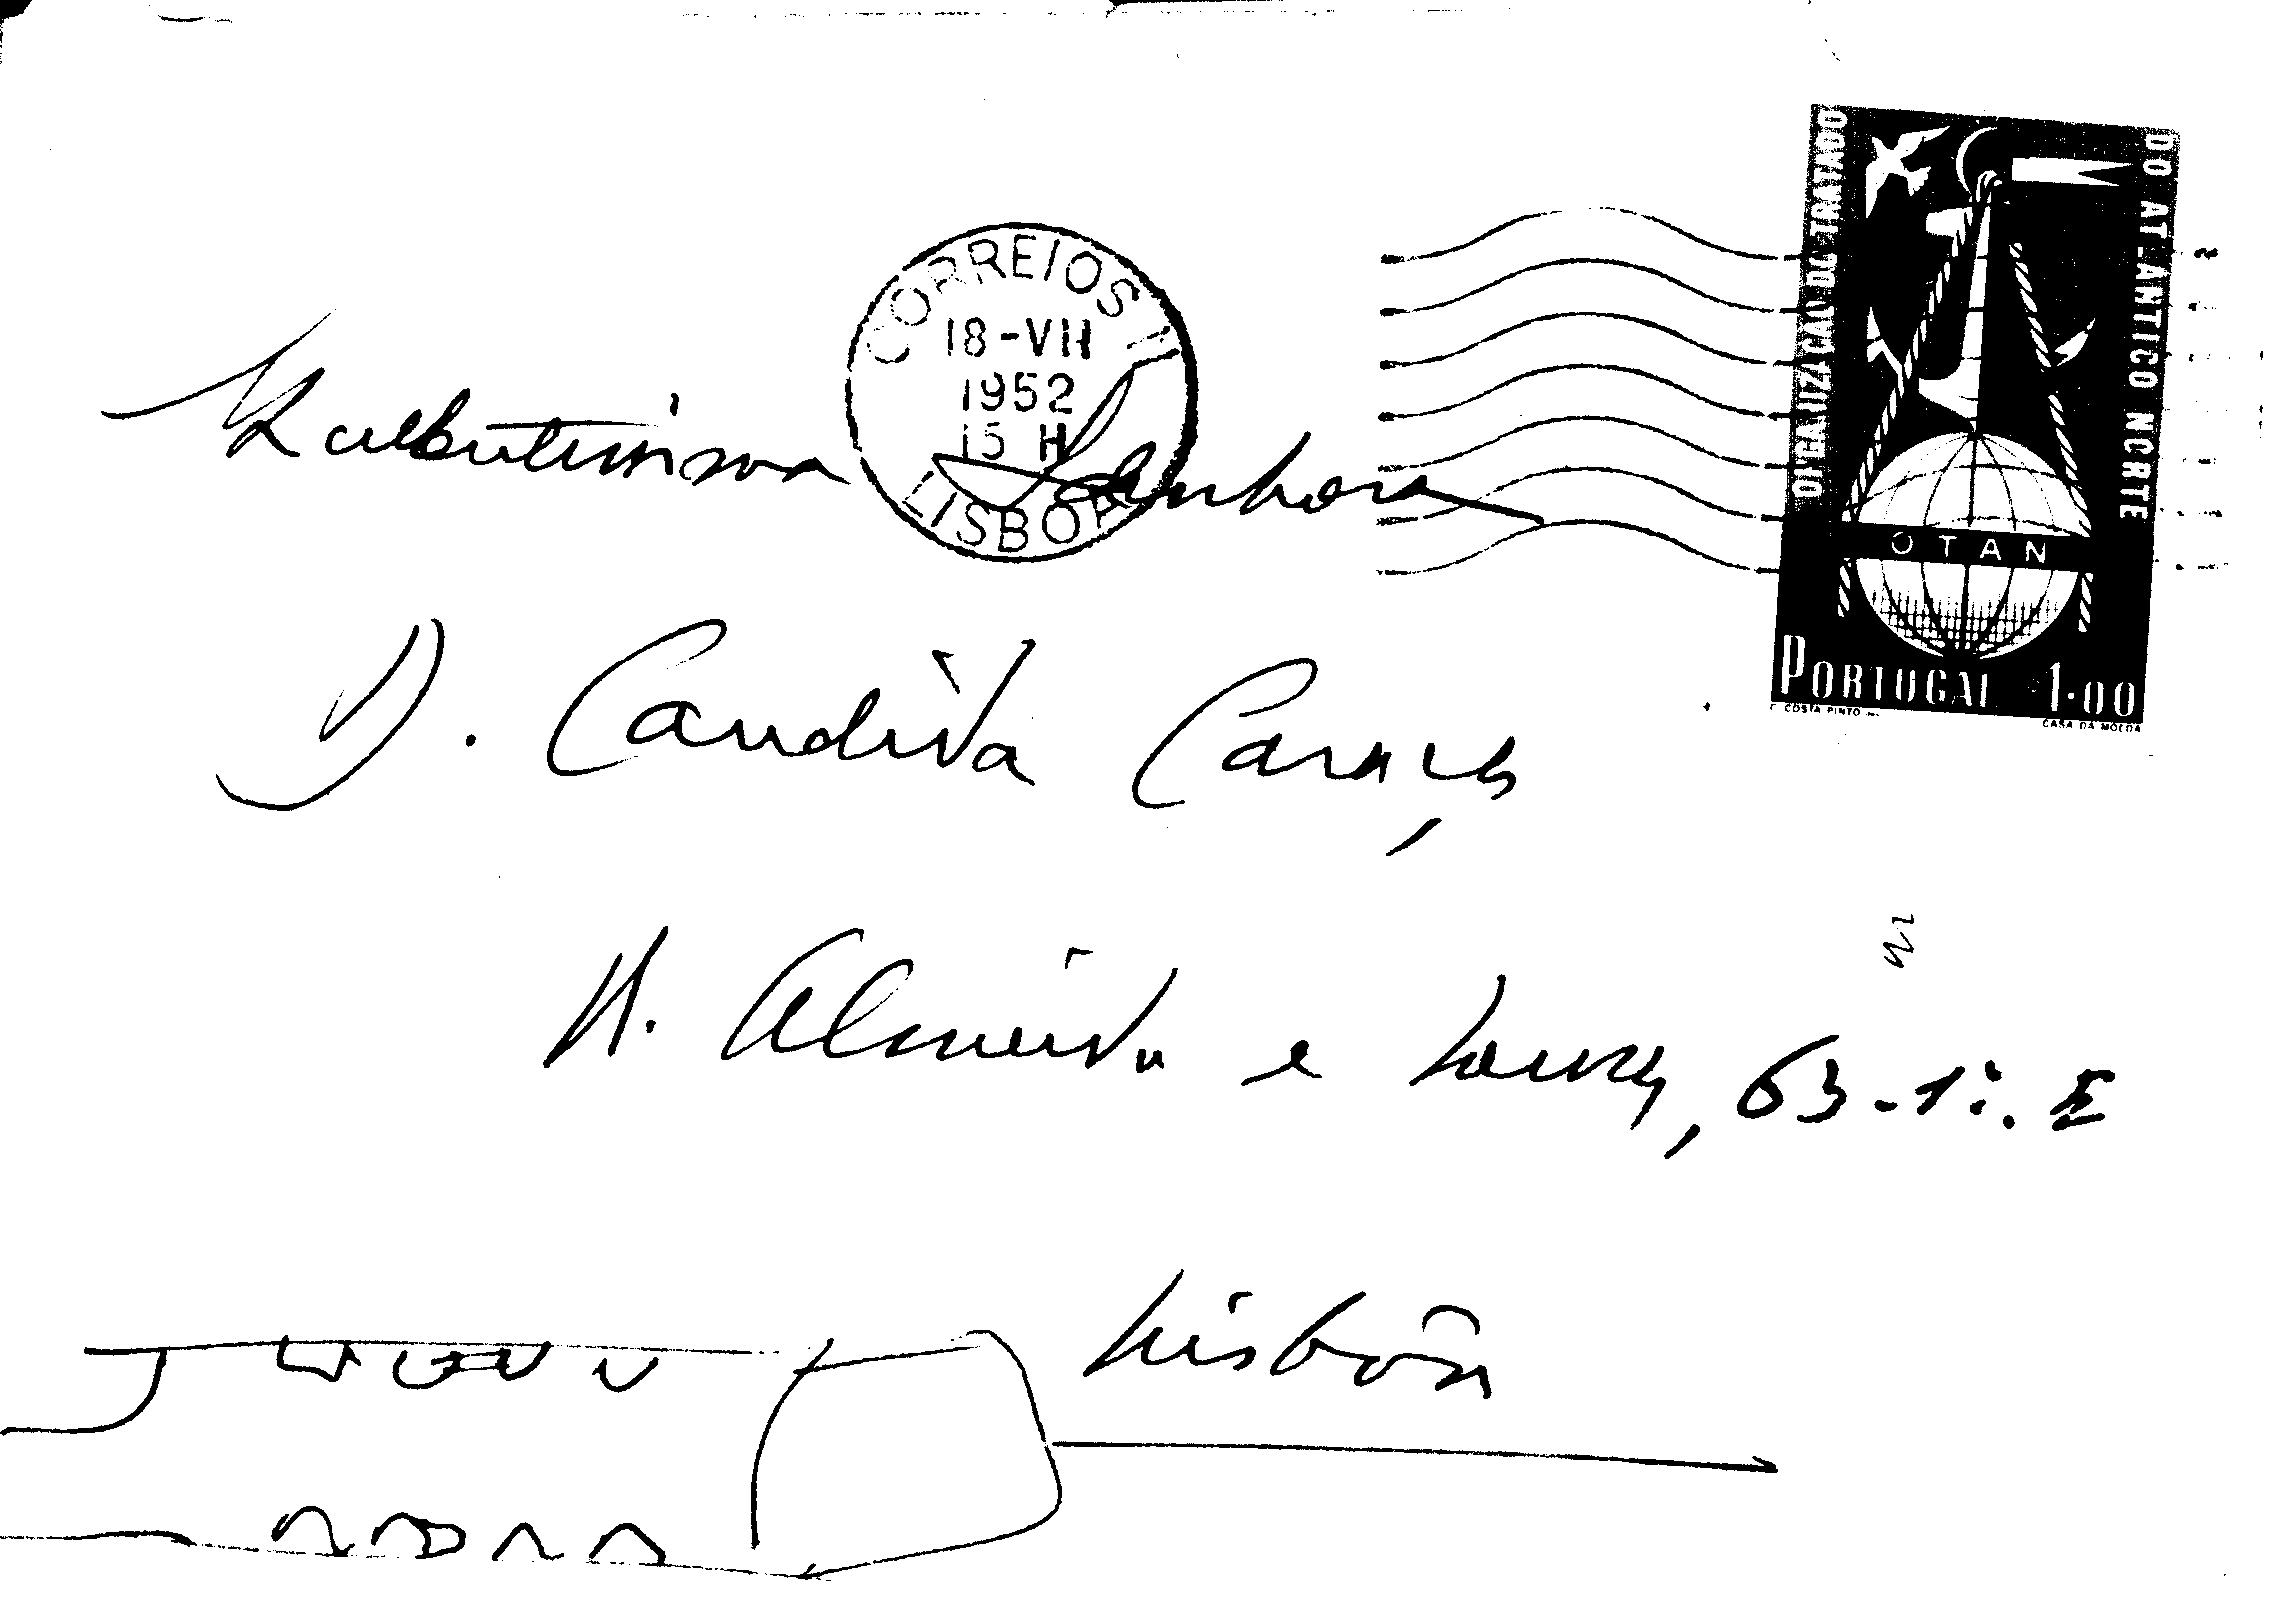 CORREIOS
18-VII
1952
15 H
LISBOA
ORGANIZAÇÃO DO TRATADO
DO ATLANTICO NORTE
OTAN
PORTUGAL 1.00
COSTA PINTO
CASA DA MOEDA
Senhora
D. Candida Caraça
R. Almeida e Sousa, 63-1º. E
Lisbôa